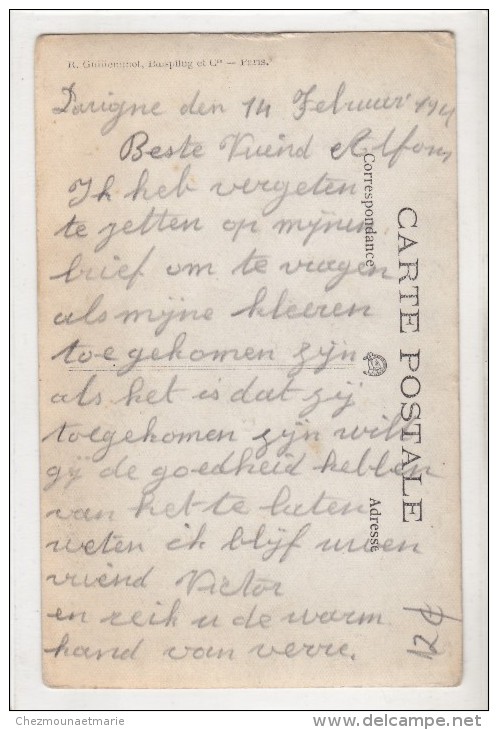 R. Guilleminot, Bœspflug et Cie — Paris.
den 14 Februari 191
Beste Vriend Alfons
Ik heb vergeten
te zetten op mijnen
brief om te vragen
als mijne kleeren
toegekomen zijn
als het is dat zij
toegekomen zijn wilt
gij de goedheid hebben
van het te laten
weten ik blijf uwen
vriend Victor
en reik u de warm
hand van verre.
CARTE POSTALE
Correspondance
Adresse
Chezmounaetmarie
www.delcampe.net